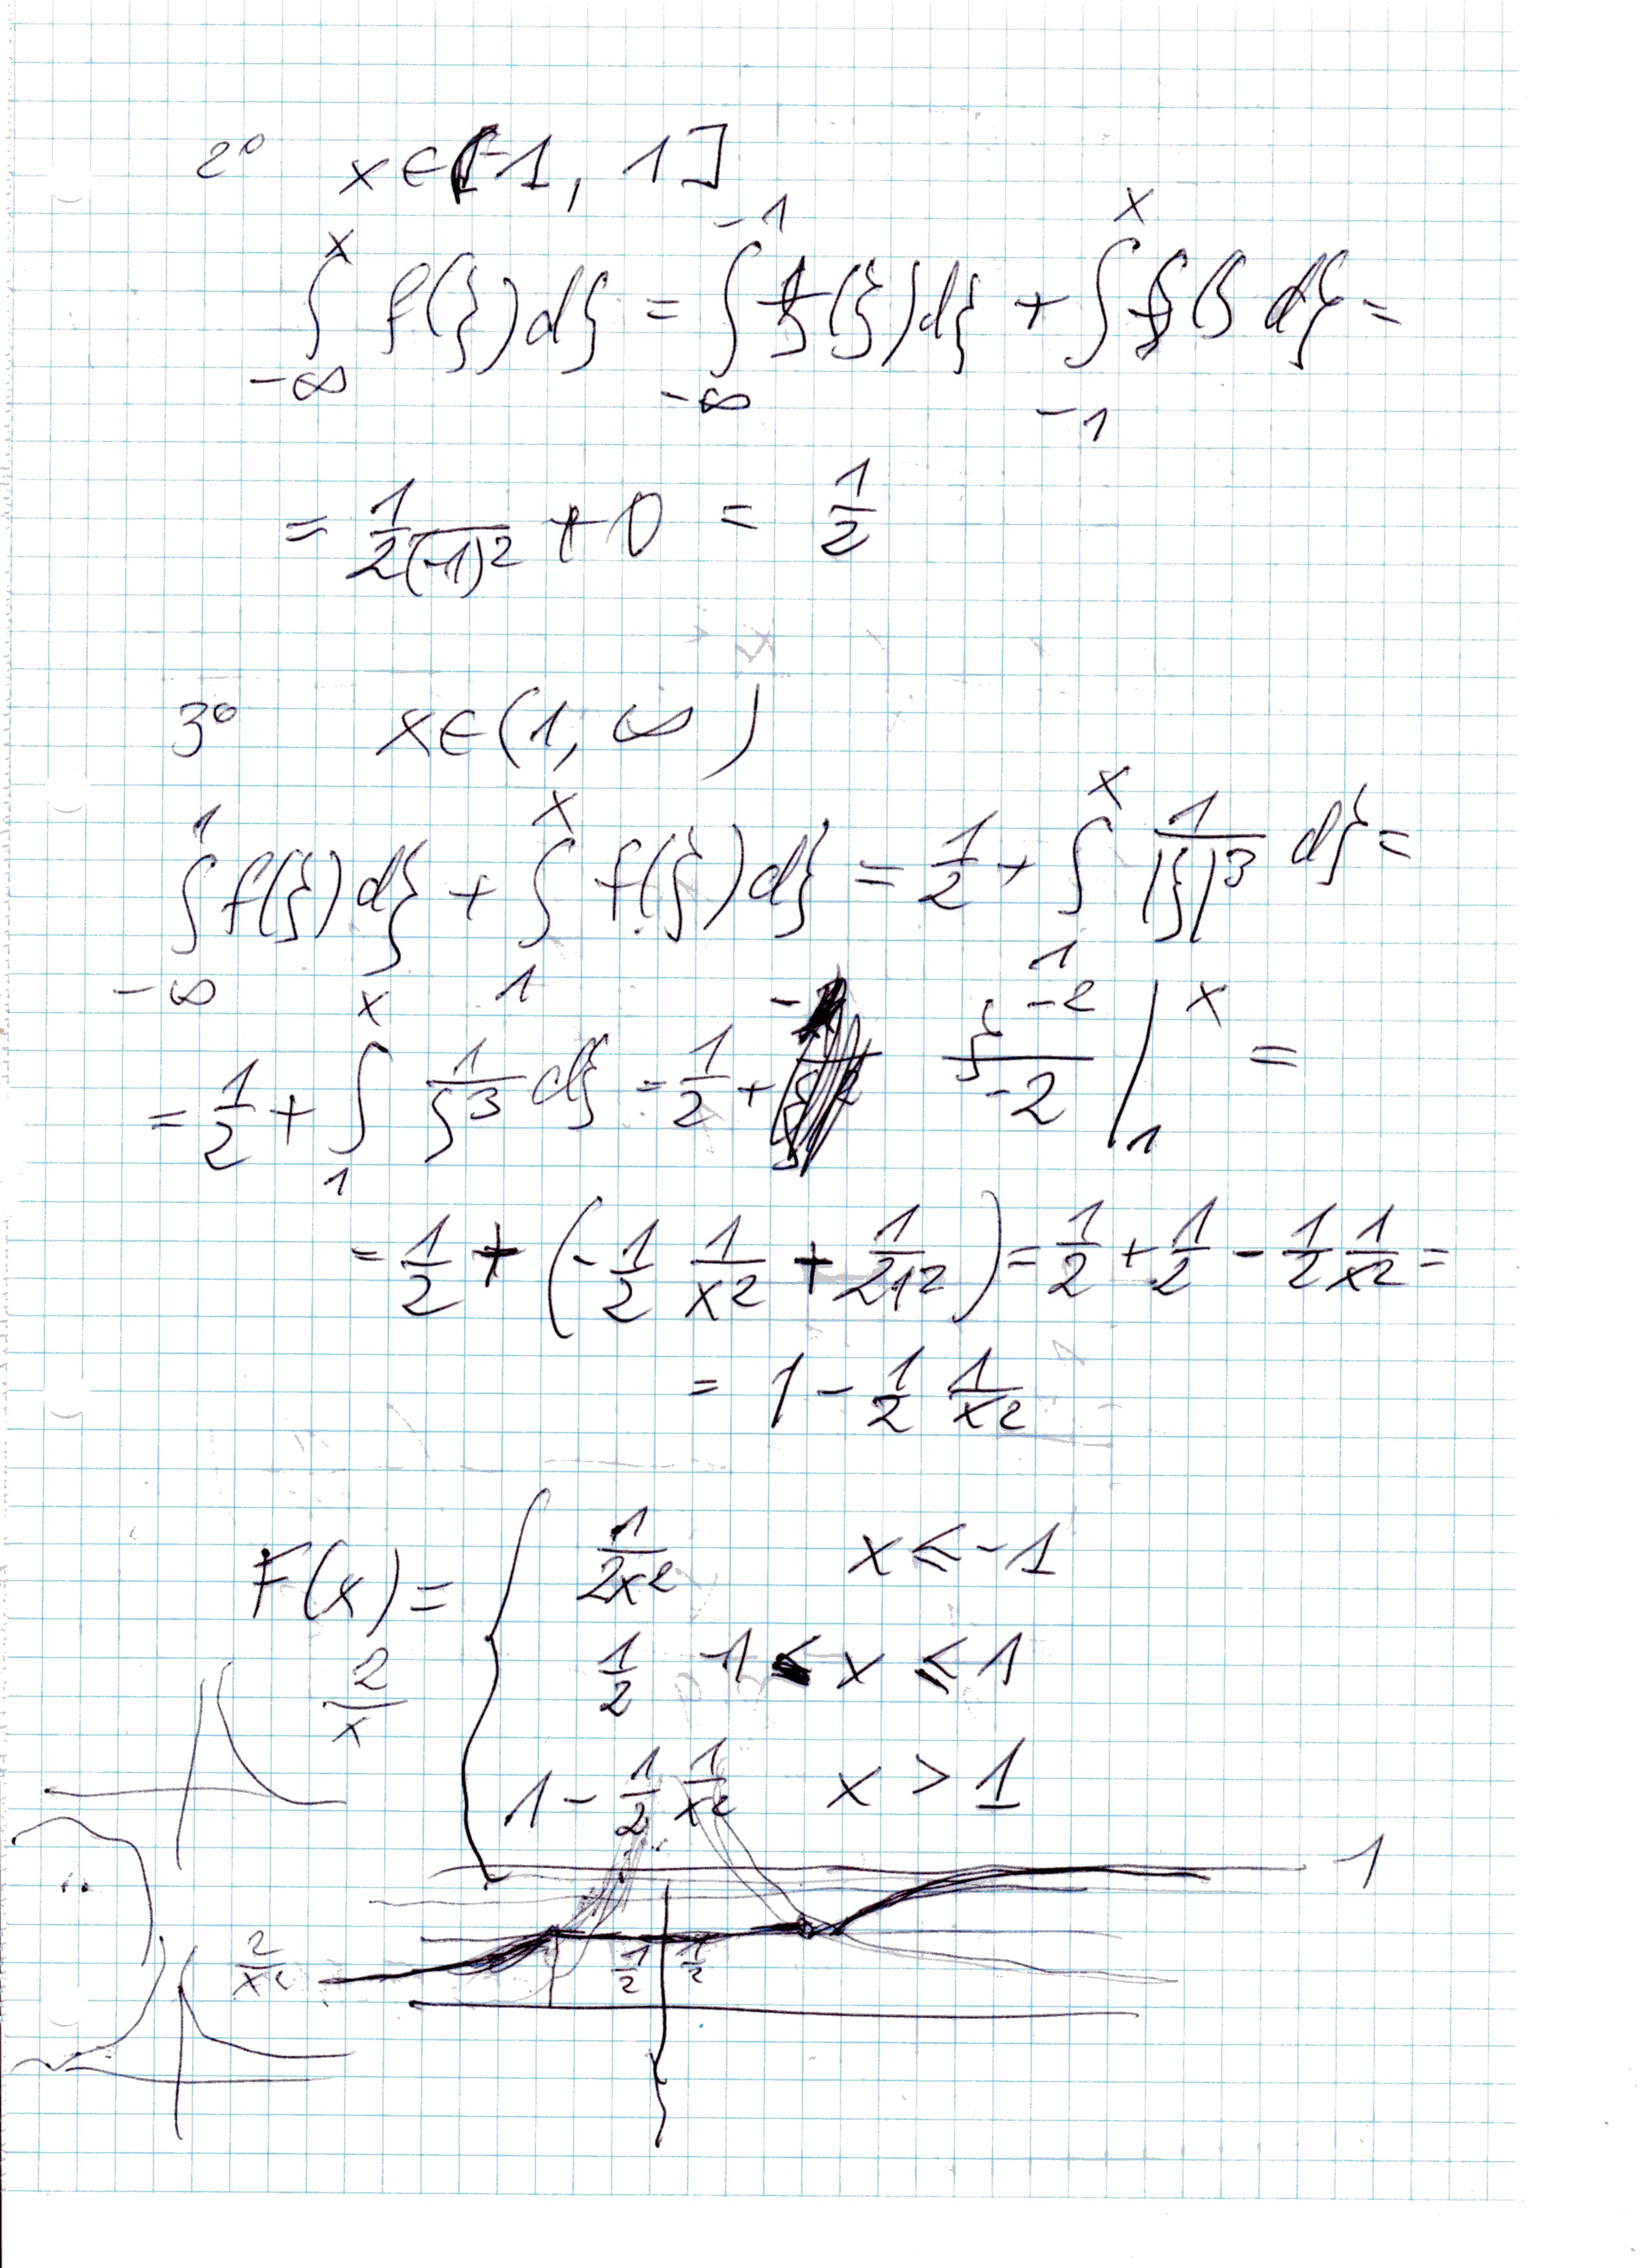 2° x∈(-1, 1]
∫_{-∞}^{x} f(ξ)dξ = ∫_{-∞}^{-1} f(ξ)dξ + ∫_{-1}^{x} f(ξ dξ =
= 1/2(-1)² + 0 = 1/2
3° x∈(1, ∞)
∫_{-∞}^{1} f(ξ)dξ + ∫_{1}^{x} f(ξ)dξ = 1/2 + ∫_{1}^{x} 1/|ξ|³ dξ =
= 1/2 + ∫_{1}^{x} 1/ξ³ dξ = 1/2 + ξ^{-2}/-2 |_{1}^{x} =
= 1/2 + (-1/2 1/x² + 1/21²) = 1/2 + 1/2 - 1/2 1/x² =
= 1 - 1/2 1/x²
F(x) = {
1/2x² x ≤ -1
1/2 -1 < x ≤ 1
1 - 1/2 1/x² x > 1
2/x
1
2/x²
1/2 1/2